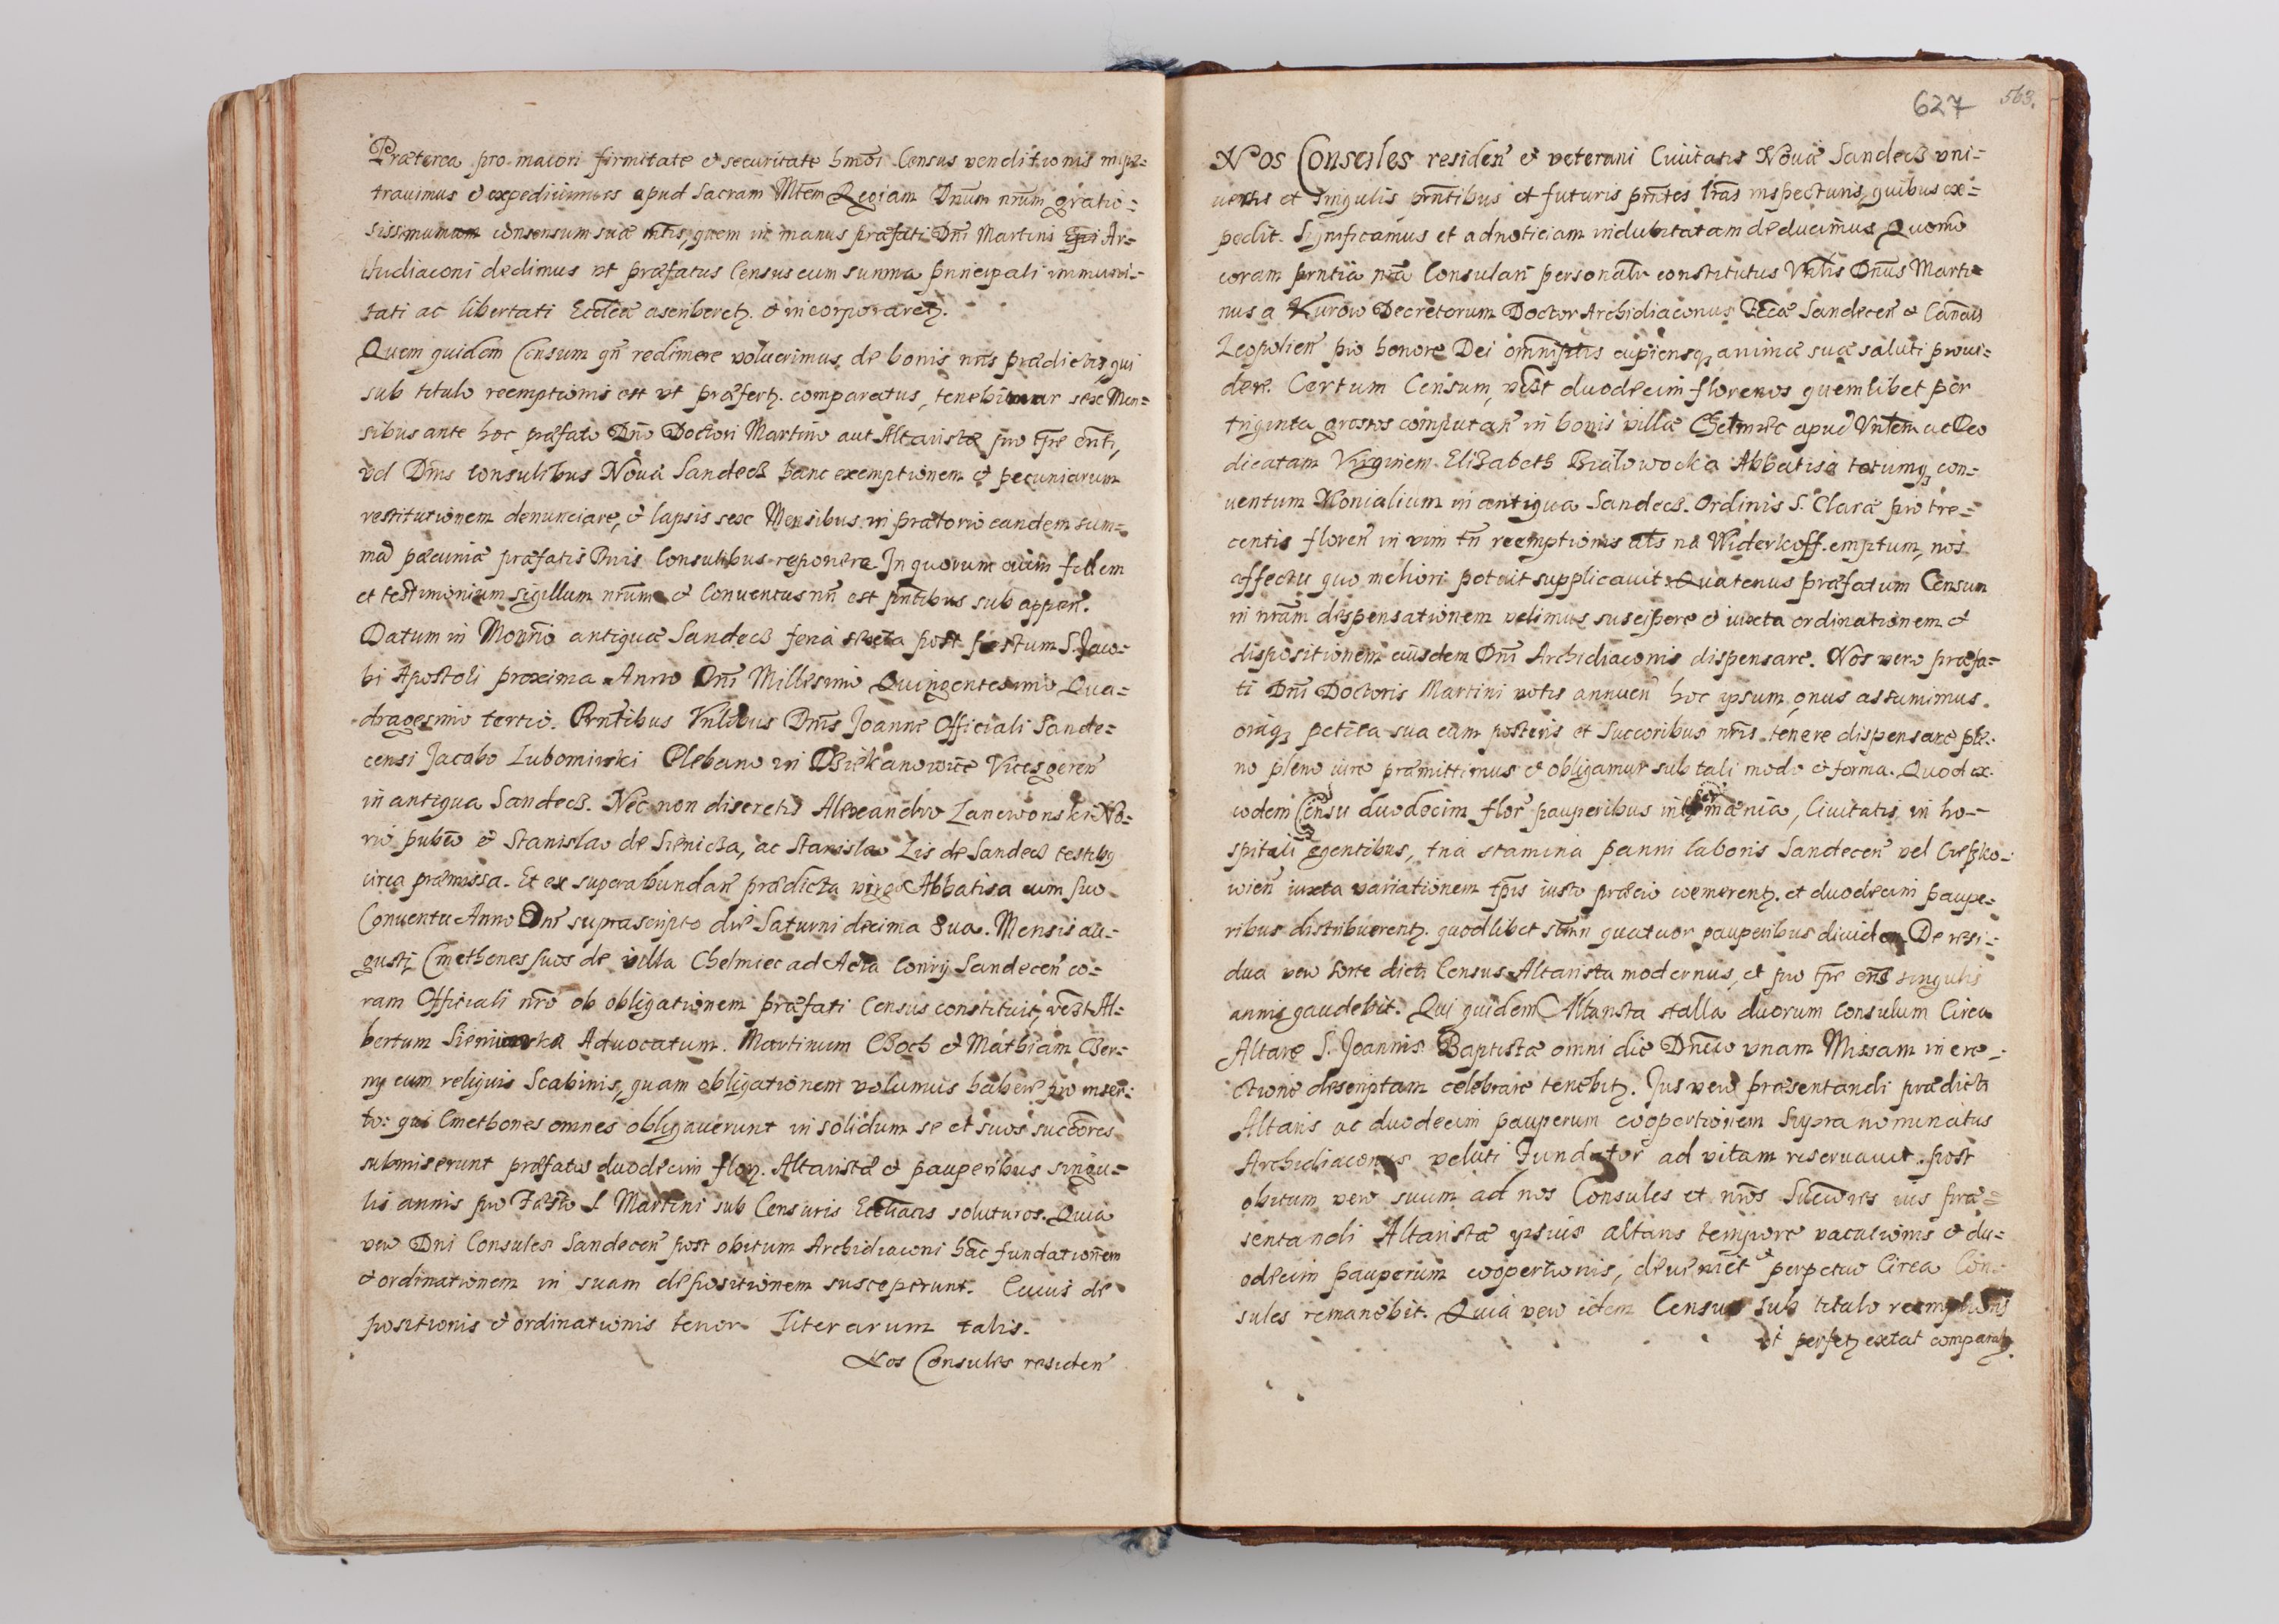 Præterea pro maiori firmitate et securitate hmōi Census venditionis impe=
travimus et expedivimus apud Sacram Mtem Regiam Dnum nrum gratio=
sissimum consensum suæ mtis, quem in manus præfati Dni Martini Ar=
chidiaconi dedimus ut præfatus Census cum summa principali immuni=
tati ac libertati Ecclæ ascriberetʒ. et incorporaretʒ.
Quem quidem Censum qn redimere voluerimus de bonis nris prædictis, qui
sub titulo reemptionis est ut præfertʒ. comparatus, tenebimur sex Men=
sibus ante hoc præfato Dno Doctori Martino aut Altaristæ pro tpre enti,
vel Dnis Consulibus Novæ Sandecz hanc exemptionem et pecuniarum
restitutionem denunciare, et lapsis sex Mensibus in prætorio eandem sum=
mā pecuniæ præfatis Dnis Consulibus reponere. In quorum fidem
et testimonium sigillum nrum et Conventus nri est pntibus sub appen.
Datum in Monrio antiquæ Sandecz feria sexta post festum S. Jaco=
bi Apostoli proxima Anno Dni Millesimo Quingentesimo Qua=
dragesimo tertio. Prntibus Vnlibus Dnis Joanne Officiali Sande=
censi Jacobo Lubomirski Plebano in Vicesgeren
in antiqua Sandecz. Nec non discretis Alexandro No=
rio pubco et Stanislao de Sienicza, ac Stanislao Lis de Sandecz testibus
circa præmissa. Et ex superabundan prædicta virgo Abbatisa cum suo
Conventu Anno Dni suprascripto die Saturni decima 8va. Mensis au=
gusti, Cmethones suos de villa Chelmiec ad Acta Conrij Sandecen co=
ram Officiali nro ob obligationem præfati Census constituit, vczt Al=
bertum Advocatum. Martinum Choch et Mathiam Cher=
ny cum reliquis Scabinis, quam obligationem volumus habere pro inser=
to: qui Cmethones omnes obligaverunt in solidum se et suos succores
submiserunt præfatis duodecim flor. Altaristæ et pauperibus singu=
lis annis pro Festo S Martini sub Censuris Eccliacis soluturos. Quia
vero Dni Consules Sandecen post obitum Archidiaconi hāc fundationem
et ordinationem in suam depositionem susceperunt. Cuius de
positionis et ordinationis tenor Literarum talis.
Nos Consules residen
627 563.
Nos Consules residen et veterani Civitatis Novæ Sandecz vni=
versis et singulis prntibus et futuris prntes lras inspecturis, quibus ex=
pedit. Significamus et ad noticiam indubitatam deducimus Quomo
coram prntia nra Consulari personalr constitutus Vnlis Dnus Marti=
nus a Kurow Decretorum Doctor Archidiaconus Eccæ Sandecen et Canon
Leopolien pro honore Dei omniptis cupiensqʒ animæ suæ saluti provi=
dere. Certum Censum, vczt duodecim florenos quemlibet per
triginta grossos computan in bonis villæ Chelmiec apud Vnlem ac Deo
dicatam Virginem Elizabeth Bialowocka Abbatisā totumqʒ con=
ventum Monialium in antiqua Sandecz. Ordinis S. Claræ pro tre=
centis floren in vim tn reemptionis als na Widerkoff emptum, nos
affectu quo meliori potuit supplicavit Quatenus præfatum Censum
in nram dispensationem velimus suscipere et iuxta ordinationem et
dispositionem eiusdem Dni Archidiaconis dispensare. Nos vero præfa=
ti Dni Doctoris Martini votis annuen hoc ipsum onus assumimus.
oiaqʒ petita sua cum posteris et Succoribus nris tenere dispensare ple=
no pleno iure promittimus et obligamur sub tali modo et forma. Quod ex
eodem Censu duodecim flor pauperibus mænia, Civitatis in ho=
spitali egentibus, tria stamina panni laboris Sandecen vel
wien iuxta variationem tpis iusto præcio coemerentʒ. et duodecim paupe=
ribus distribuerentʒ. quodlibet stmn quatuor pauperibus dividen De resi=
dua vero sorte dicti Census Altarista modernus, et pro tpre ens singulis
annis gaudebit. Qui quidem Altarista stalla duorum Consulum Circa
Altare S. Joannis Baptistæ omni die Dnico vnam Missam in ere=
ctione descriptam celebrare tenebitʒ. Jus vero præsentandi prædicti
Altaris ac duodecim pauperum coopertionem Supra nominatus
Archidiaconus veluti Fundator ad vitam reservavit. post
obitum vero suum ad nos Consules et nros Succores ius præ=
sentandi Altaristæ ipsius altaris tempore vacationis et du=
odecim pauperum coopertionis, deveniet et perpetuo Circa Con=
sules remanebit. Quia vero idem Census sub titulo reemptionis
ut perfetʒ extat comparatʒ.